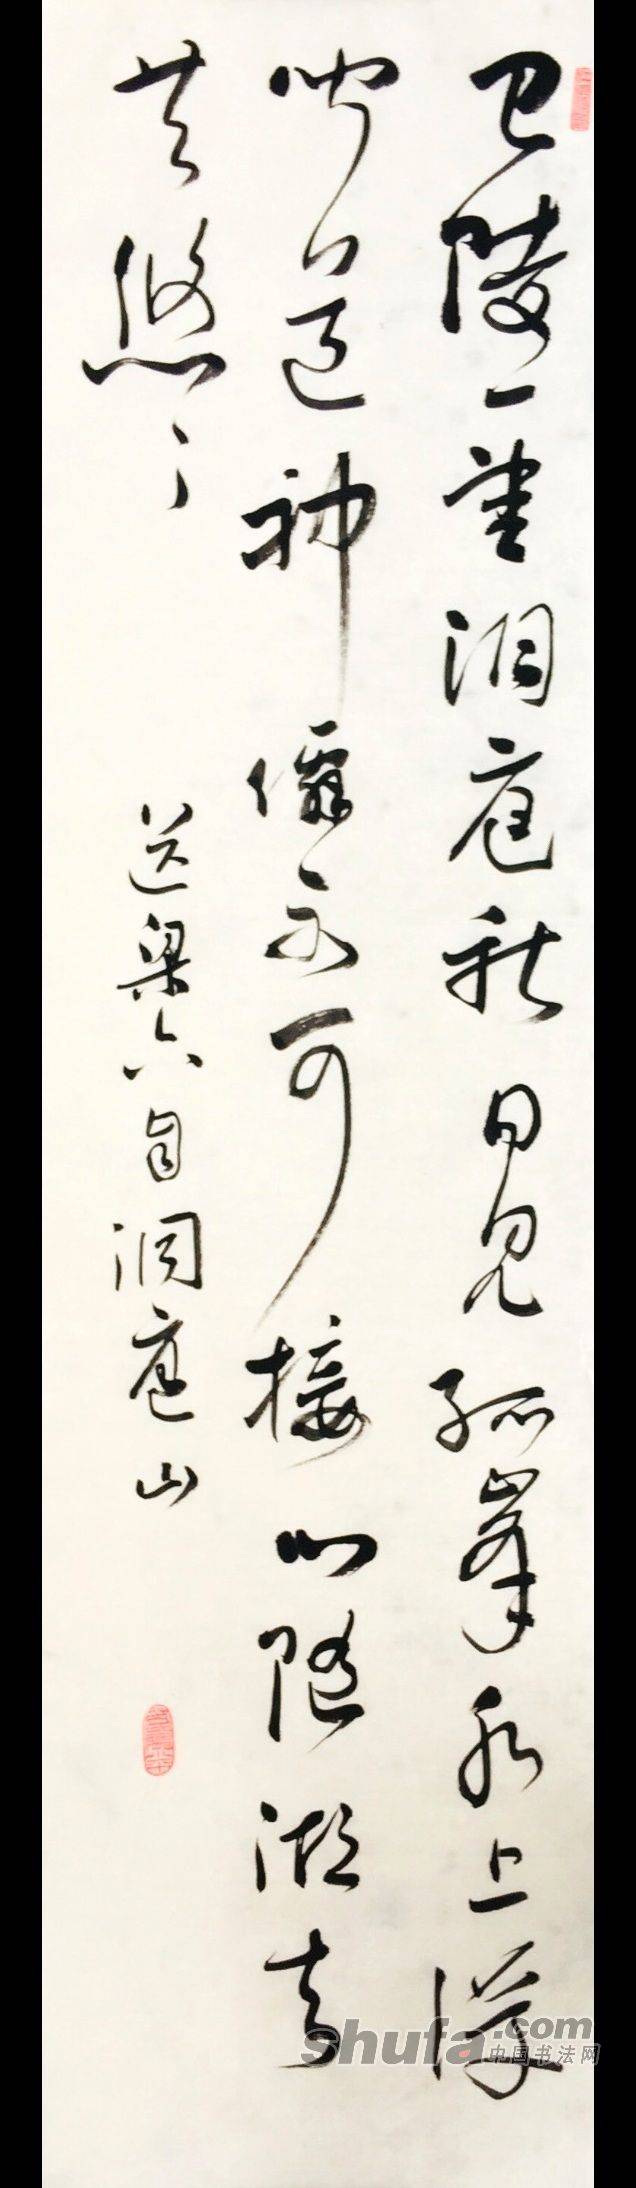 巴陵一望洞庭秋日見孤峯水上浮
聞道神僊不可接心隨湖水
共悠々
送梁六自洞庭山
shufa.com
中国书法网